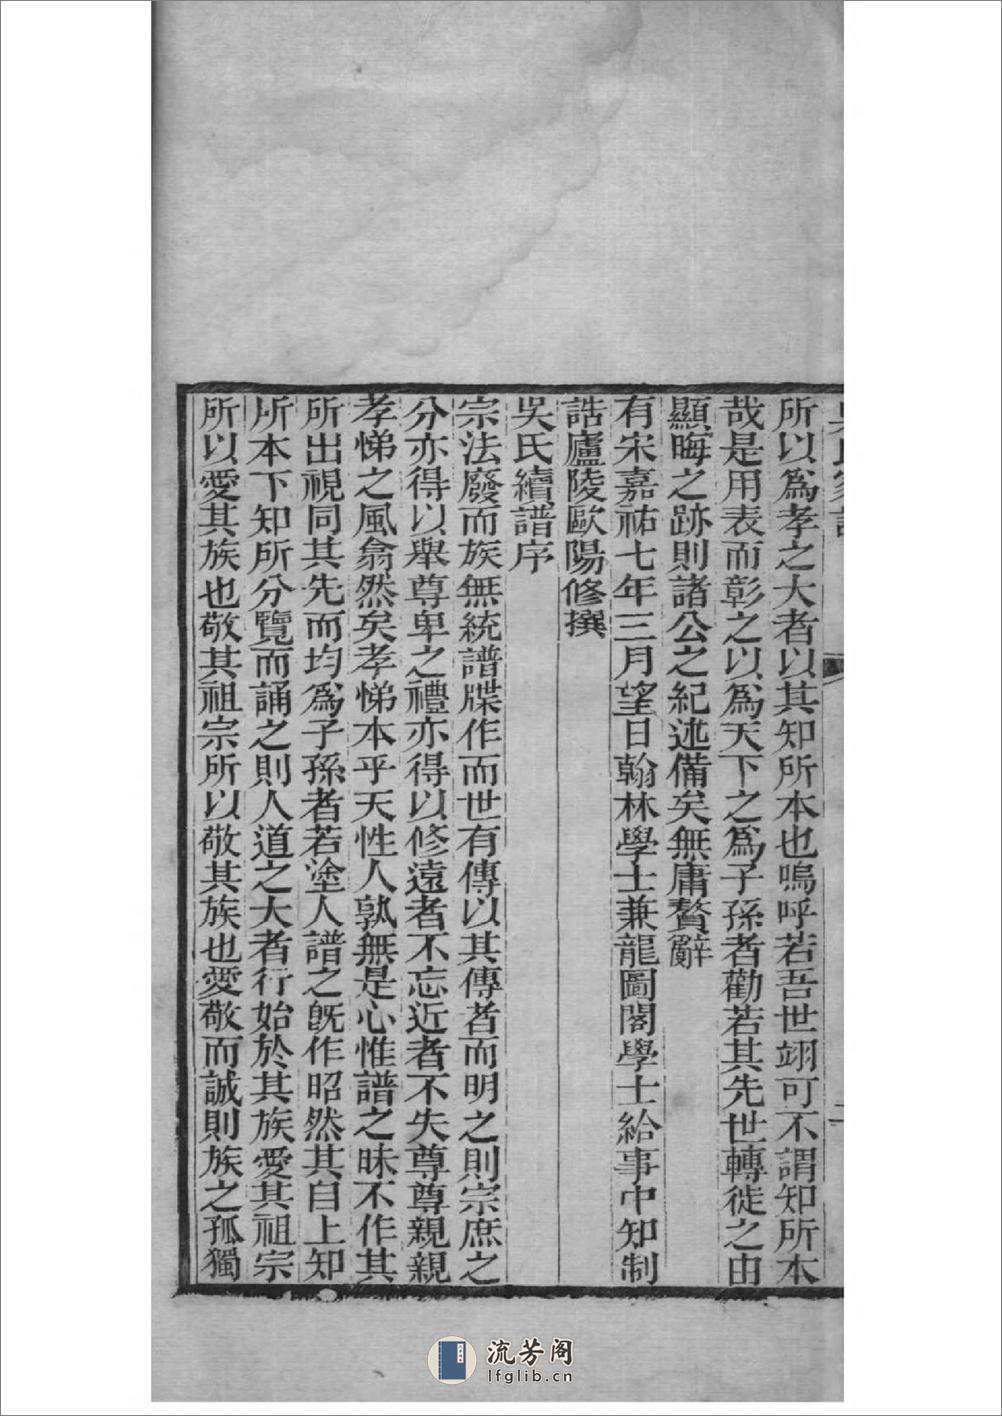 所以爲孝之大者以其知所本也嗚呼若吾世翊可不謂知所本
哉是用表而彰之以爲天下之爲子孫者勸若其先世轉徙之由
顯晦之跡則諸公之紀述備矣無庸贅辭
有宋嘉祐七年三月望日翰林學士兼龍圖閣學士給事中知制
誥廬陵歐陽修撰
吳氏續譜序
宗法廢而族無統譜牒作而世有傳以其傳者而明之則宗庶之
分亦得以舉尊卑之禮亦得以修遠者不忘近者不失尊尊親親
孝悌之風翕然矣孝悌本乎天性人孰無是心惟譜之昧不作其
所出視同其先而均爲子孫者若塗人譜之旣作昭然其自上知
所本下知所分覽而誦之則人道之大者行始於其族愛其祖宗
所以愛其族也敬其祖宗所以敬其族也愛敬而誠則族之孤獨
流芳阁
lfglib.cn